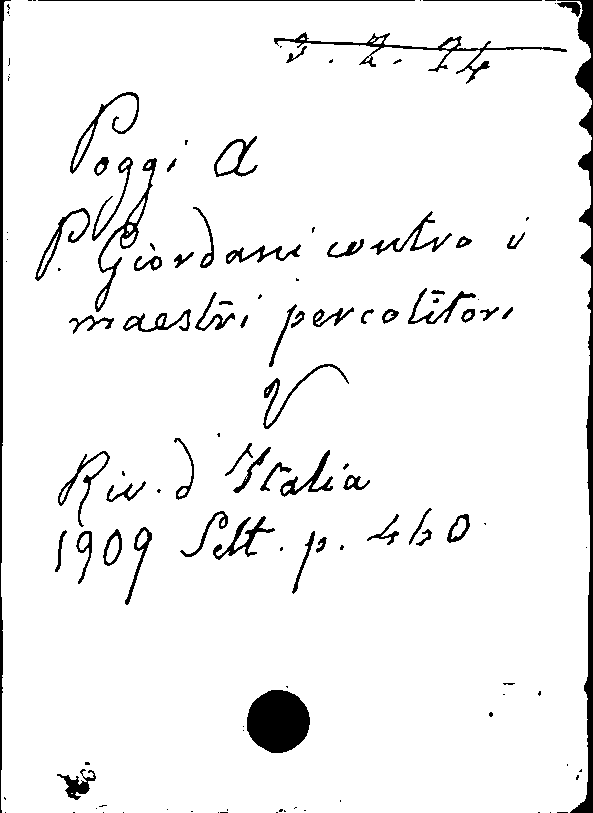 3.2.74
Poggi A
P. Giordani contro i
maestri percotitori
V
Riv. d'Italia
1909 Sett. p. 460